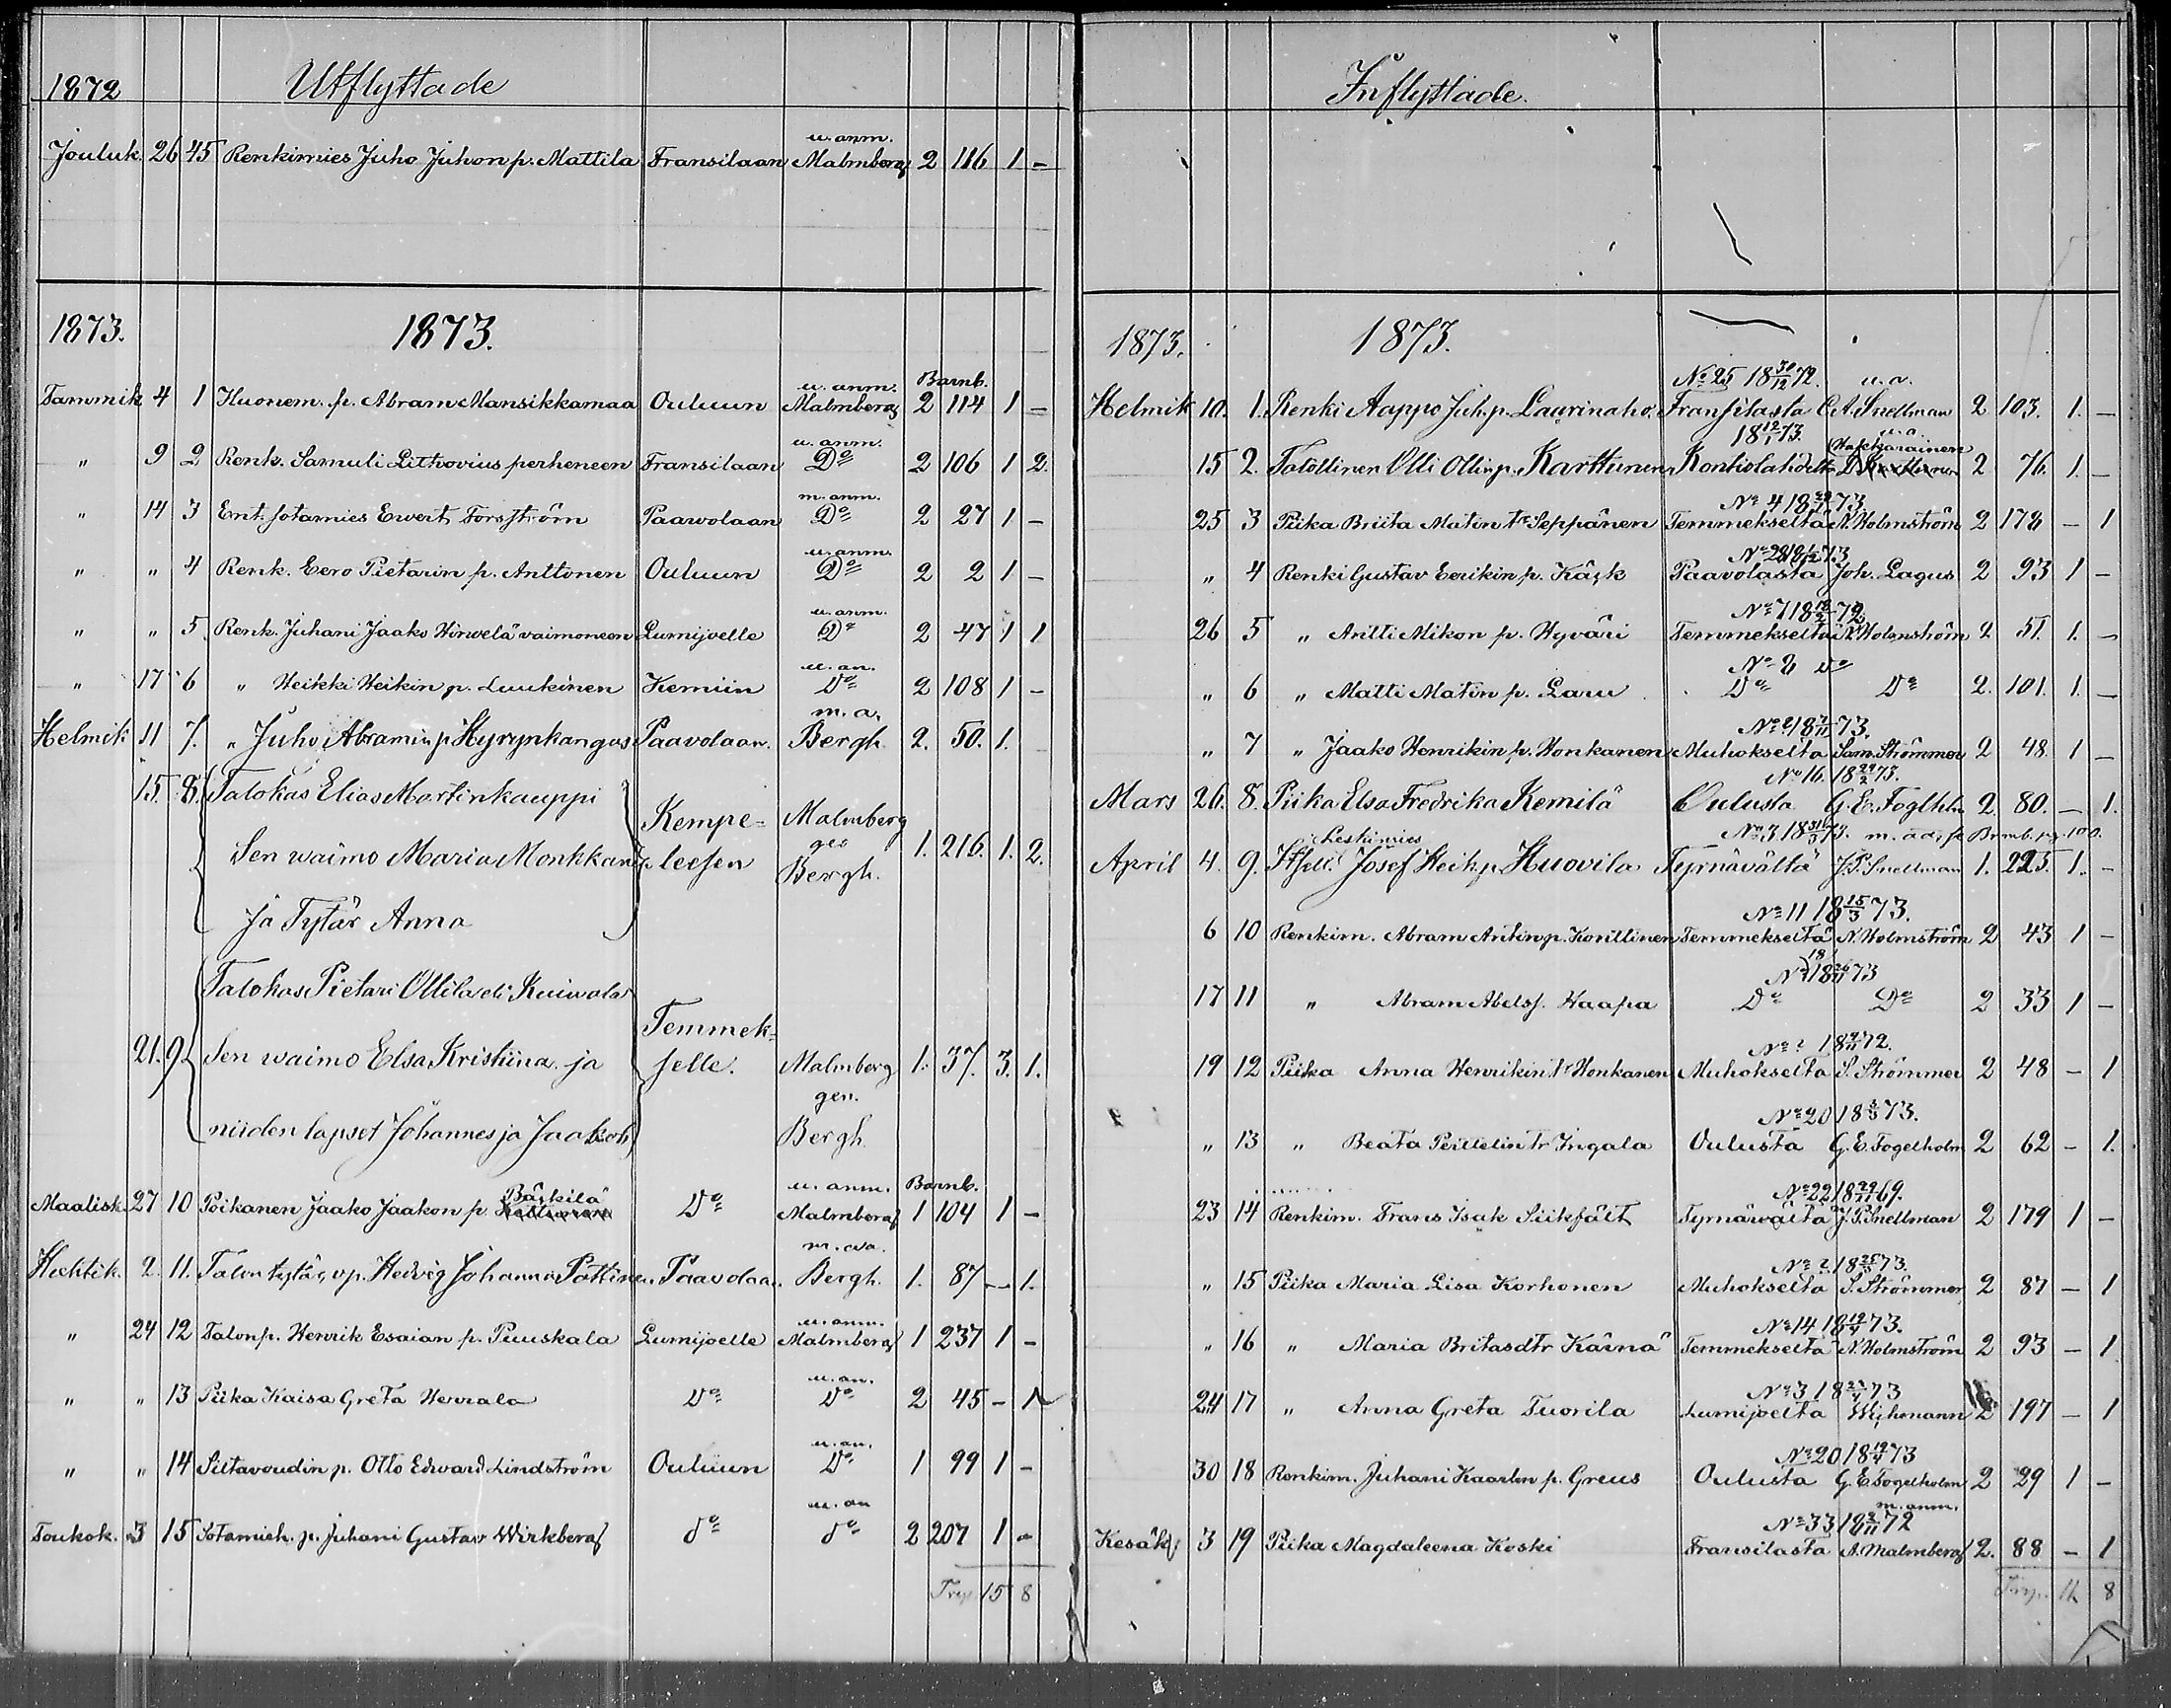 1872 Utflyttade
u. anm.
Jouluk. 26 45 Renkimies Juho Juhon p. Mattila Fransilaan Malmberg 2 116 1 -
1873. 1873.
u. anm. Barnb.
Tammik 4 1 Huonem. p. Abram Mansikkamaa Ouluun Malmberg 2 114 1 -
u. anm.
" 9 2 Renk. Samuli Lithovius perheneen Fransilaan Do 2 106 1 2.
m. anm.
" 14 3 Ent. sotamies Ewert Forsström Paawolaan Do 2 27 1 -
u. anm.
" " 4 Renk. Eero Pietarin p. Anttonen Ouluun Do 2 2 1 -
u. anm.
" " 5 Renk. Juhani Jaako Hirwelä vaimoneen Lumijoelle Do 2 47 1 1
u. an.
" 17 6 " Heikki Heikin p. Luukinen Kemiin Do 2 108 1 -
m. a.
Helmik 11 7. " Juho Abramin p. Hyrynkangas Paavolaan. Bergh. 2. 50. 1.
15. 8. Talokas Elias Martinkauppi
Sen waimo Maria Monkkan
ja Tytär Anna
Kempe=
leesen
Malmberg
ges
Bergh.
1. 216. 1. 2.
Talokas Pietari Ollila eli Kuiwala
21. 9. Sen waimo Elsa Kristiina ja
niiden lapset Johannes ja Jaakob
Temmek-
selle.
Malmberg
gen.
Bergh.
1. 37. 3. 1.
Bäckilä u. anm. Barnb.
Maalisk. 27 10 Poikanen Jaako Jaakon p. Do Malmberg 1 104 1 -
Huhtik. 2. 11. Talon tytär, vp. Hedvig Johanna Pattine. Paavolaan. Bergh. 1. 87 - 1.
u. anm.
" 24 12 Talon p. Henrik Esaian p. Puuskala Lumijoelle Malmberg 1 237 1 -
u. an.
" " 13 Piika Kaisa Greta Herrala Do Do 2 45 - 1
u. an.
" " 14 Siltavoudin p. Otto Edward Lindström Ouluun Do 1 99 1 -
u. an
Toukok. 3 15 Sotamieh. p. Juhani Gustav Wirkberg do do 2 207 1 -
Trsp. 15 8
Inflyttade.
1873. 1873.
No 25 18 30/12 72. u. a.
Helmik 10. 1. Renki Aappo Juh. p. Laurinaho. Fransilasta C. A. Snellman 2 103. 1. -
18 12/1 73. u. a
Hakkarainen
15 2. Talollinen Olli Ollin p. Karttunen Kontiolahdelta 2 76. 1. -
No 4 73
25 3 Piika Briita Matin tr Seppänen Temmekseltä N. Holmström 2 178 - 1
73
" 4 Renki Gustav Eerikin p. Käck Paavolasta Joh. Lagus 2 93 1 -
No 7 72
26 5 " Antti Mikon p. Hyväri Temmekseltä N. Holmström 2 51. 1. -
No 8 do
" 6 " Matti Matin p. Laru Do Do 2. 101. 1. -
73.
" 7 " Jaako Henrikin p. Honkanen Muhokselta Sam. Strömmer 2 48. 1 -
No 16. 18 29/2 73.
Mars 26. 8. Piika Elsa Fredrika Kemilä Oulusta G. E. Foglhlm 2. 80. - 1.
Leskimies No 3 18 31/3 73. Barnb. pg. 100.
April 4. 9. Josef Heik p. Huovila Tyrnävältä J. P. Snellman 1. 225. 1. -
No 11 18 15/3 73.
6 10 Renkim. Abram Antin p. Konttinen Temmekseltä N. Holmström 2 43 1 -
73
17 11 " Abram Abels p. Haapa Do Do 2 33 1 -
72.
19 12 Piika Anna Henrikin tr Honkanen Muhokselta S. Strömmer 2 48 - 1
No 20 18 73.
" 13 " Beata Peittelin tr Ingala Oulusta G. E. Fogelholm 2 62 - 1.
No 22 18 29/11 69.
23 14 Renkim. Frans Isak Siikfält Tyrnäwältä J. P. Snellman 2 179 1 -
73.
" 15 Piika Maria Lisa Korhonen Muhokselta S. Strömmer 2 87 - 1
No 14 18 12/4 73.
" 16 " Maria Britasdtr Kärnä Temmekseltä N. Holmström 2 93 - 1
No 3 73
24 17 " Anna Greta Tuorila Lumijoelta Wichmann 2 197 - 1
No 20 18 12/4 73
30 18 Renkim. Juhani Kaarlen p. Greus Oulusta G. E. Fogelholm 2 29 1 -
m. anm.
No 33 72
Kesäk 3 19 Piika Magdaleena Koski Fransilasta A. Malmberg 2. 88 - 1
Trsp. 11 8